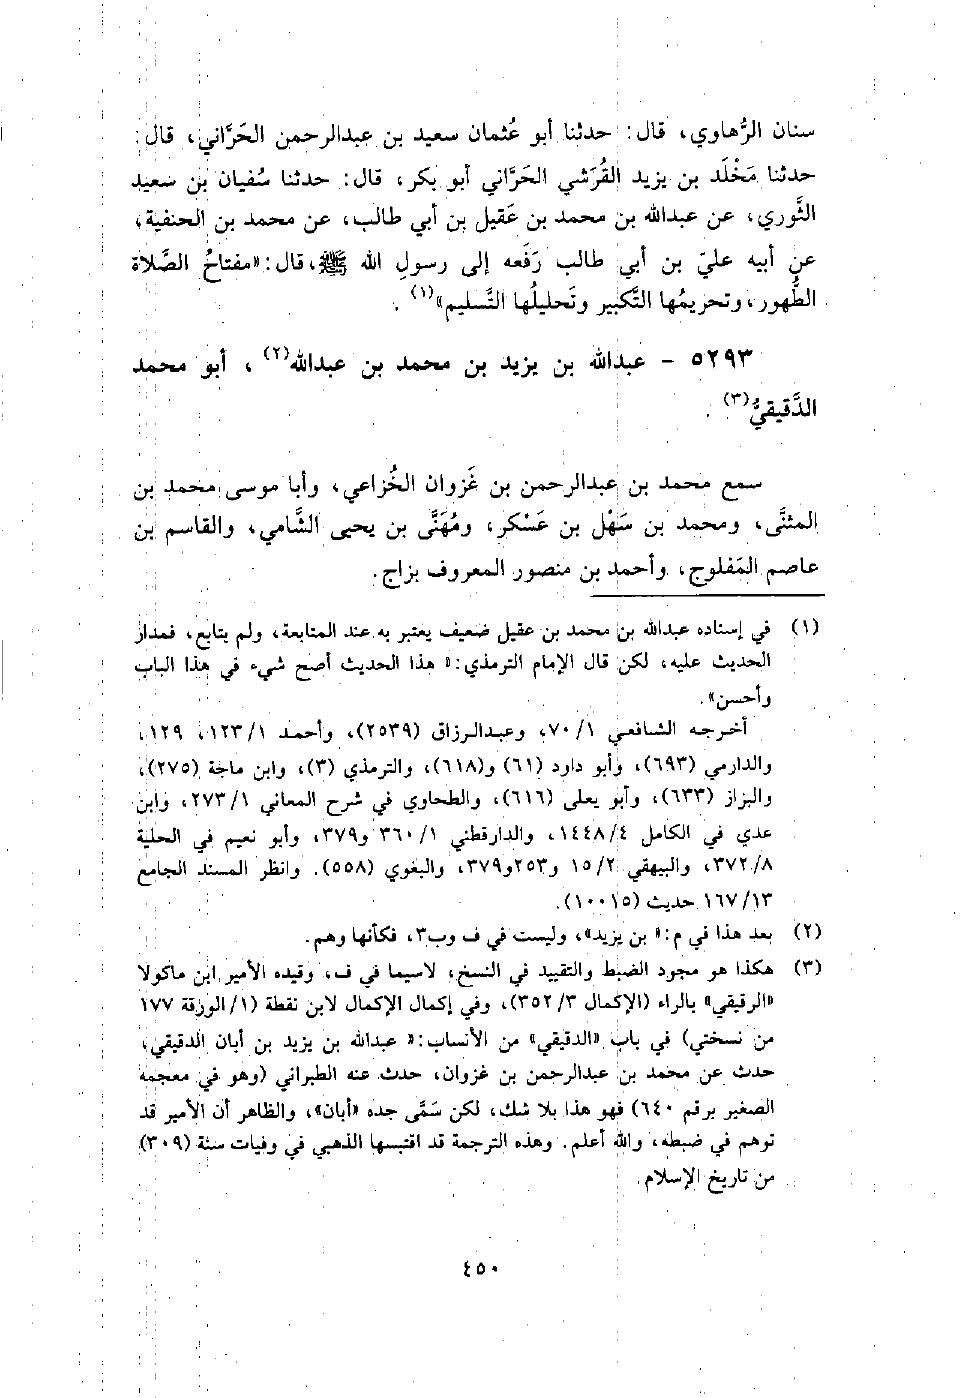 سنان الرُّهاوي، قال: حدثنا أبو عُثمان سعيد بن عبدالرحمن الحَرَّاني، قال:
حدثنا مَخْلَد بن يزيد القُرَشي الحَرَّاني أبو بكر، قال: حدثنا سُفيان بن سعيد
الثَّوري، عن عبدالله بن محمد بن عَقيل بن أبي طالب، عن محمد بن الحنفية،
عن أبيه عليّ بن أبي طالب رَفَعه إلى رسولِ الله ﷺ، قال: «مفتاحُ الصَّلاة
الطُّهور، وتحريمُها التَّكبير وتَحليلُها التَّسليم»(١).
٥٢٩٣ - عبدالله بن يزيد بن محمد بن عبدالله(٢)، أبو محمد
الدَّقيقيُّ(٣).
سمع محمد بن عبدالرحمن بن غَزوان الخُزاعي، وأبا موسى محمد بن
المثنَّى، ومحمد بن سَهْل بن عَسْكر، ومُهَنَّى بن يحيى الشَّامي، والقاسم بن
عاصم المَفلوج، وأحمد بن منصور المعروف بزاج.
(١) في إسناده عبدالله بن محمد بن عقيل ضعيف يعتبر به عند المتابعة، ولم يتابع، فمدار
الحديث عليه، لكن قال الإمام الترمذي: « هذا الحديث أصح شيء في هذا الباب
وأحسن».
أخرجه الشافعي ١/ ٧٠، وعبدالرزاق (٢٥٣٩)، وأحمد ١/ ١٢٣، ١٢٩،
والدارمي (٦٩٣)، وأبو داود (٦١) و(٦١٨)، والترمذي (٣)، وابن ماجة (٢٧٥)،
والبزار (٦٣٣)، وأبو يعلى (٦١٦)، والطحاوي في شرح المعاني ١/ ٢٧٣، وابن
عدي في الكامل ٤/ ١٤٤٨، والدارقطني ١/ ٣٦٠ و٣٧٩، وأبو نعيم في الحلية
٨/ ٣٧٢، والبيهقي ٢/ ١٥ و٢٥٣و٣٧٩، والبغوي (٥٥٨). وانظر المسند الجامع
١٣/ ١٦٧ حديث (١٠٠١٥).
(٢) بعد هذا في م: « بن يزيد»، وليست في ف وب٣، فكأنها وهم.
(٣) هكذا هو مجود الضبط والتقييد في النسخ، لاسيما في ف، وقيده الأمير ابن ماكولا
«الرقيقي» بالراء (الإكمال ٣/ ٣٥٢)، وفي إكمال الإكمال لابن نقطة (١/ الورقة ١٧٧
من نسختي) في باب «الدقيقي» من الأنساب: « عبدالله بن يزيد بن أبان الدقيقي،
حدث عن محمد بن عبدالرحمن بن غزوان، حدث عنه الطبراني (وهو في معجمه
الصغير برقم ٦٤٠) فهو هذا بلا شك، لكن سَمَّى جده «أبان»، والظاهر أن الأمير قد
توهم في ضبطه، والله أعلم. وهذه الترجمة قد اقتبسها الذهبي في وفيات سنة (٣٠٩)
من تاريخ الإسلام.
٤٥٠